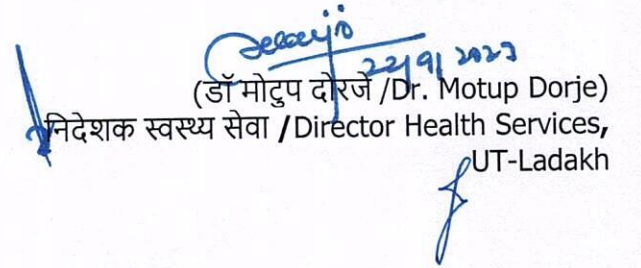 22/9/2023
(डॉ मोटुप दोरजे /Dr. Motup Dorje)
निदेशक स्वस्थ्य सेवा /Director Health Services,
UT-Ladakh